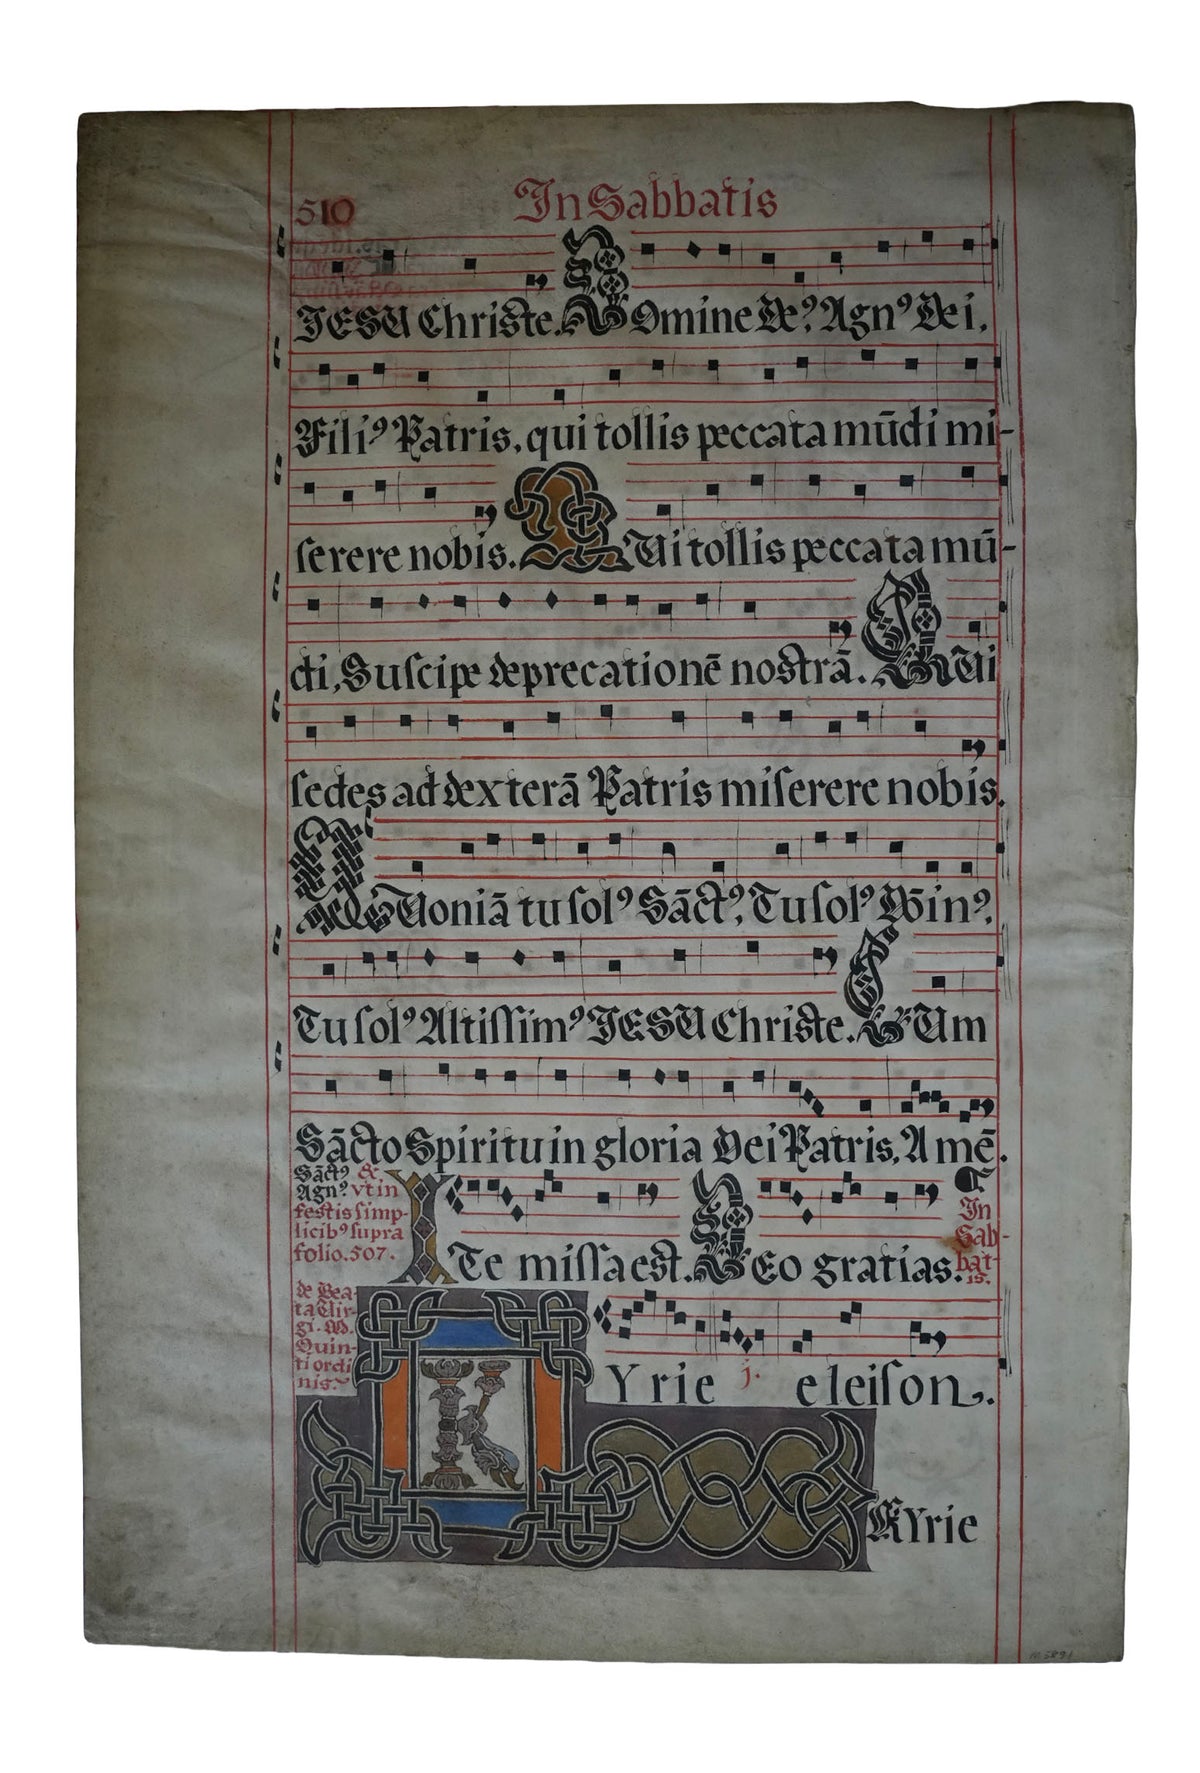 510 In Sabbatis
JESU Christe. Domine Deꝰ, Agnꝰ Dei,
Filiꝰ Patris. qui tollis peccata mūdi mi-
serere nobis. QUi tollis peccata mū-
di, Suscipe deprecationē nostrā. QUi
sedes ad dexterā Patris miserere nobis.
QUoniā tu solꝰ Sāctꝰ, Tu solꝰ Dōinꝰ.
Tu solꝰ Altissimꝰ JESU Christe. CUm
Sācto Spiritu in gloria Dei Patris, Amē.
Sāctꝰ &
Agnꝰ. vt in
festis simp-
licibꝰ supra
folio. 507.
ITe missa est. DEo gratias.
In
Sab-
bat-
is.
de Bea-
ta Vir-
gi. M.
Quin-
ti ordi
nis.
KYrie j. eleison.
KYrie